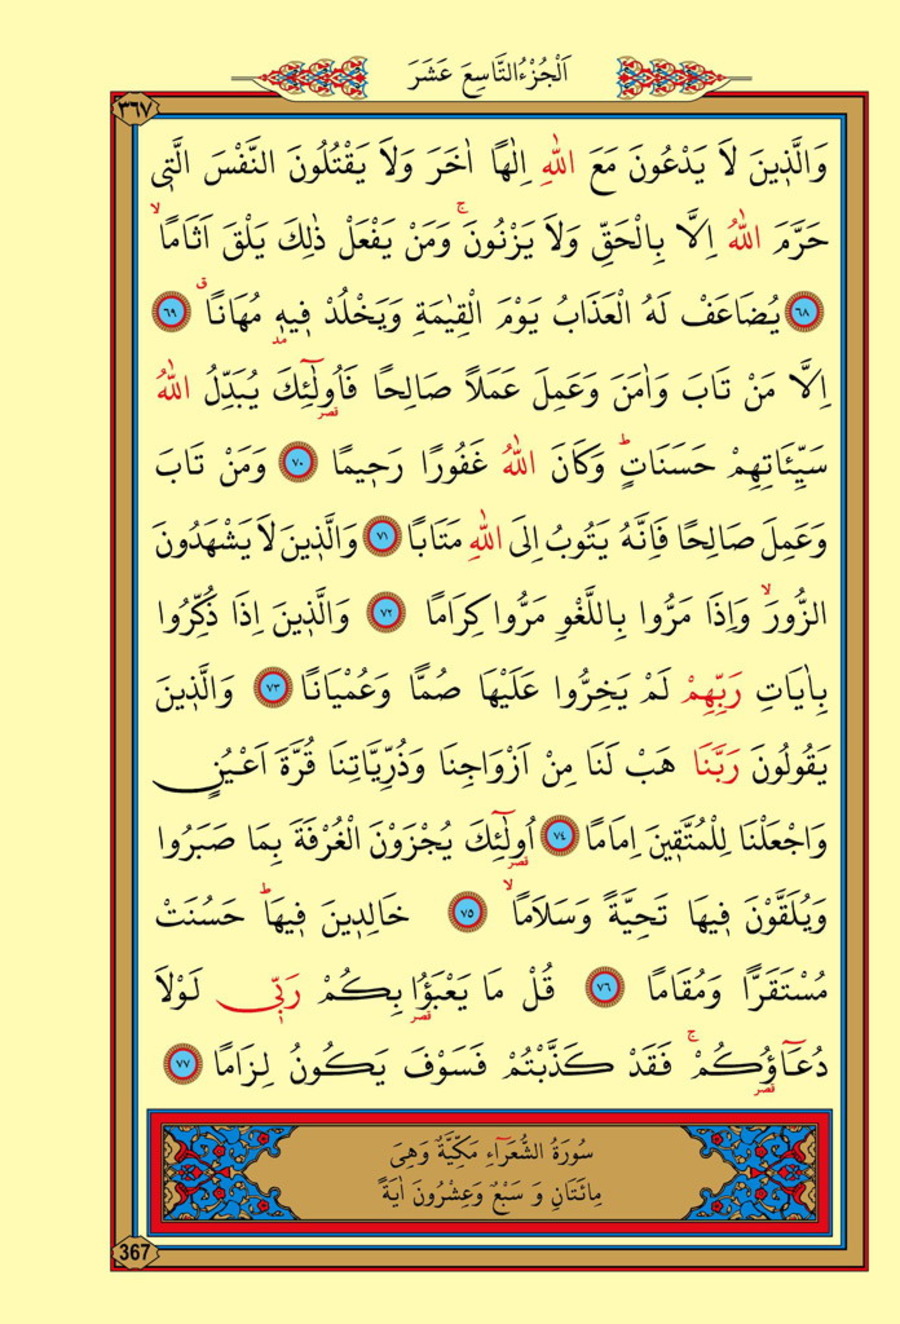 اَلْجُزْءُ التَّاسِعَ عَشَرَ
٣٦٧
وَالَّذ۪ينَ لَا يَدْعُونَ مَعَ اللّٰهِ اِلٰهًا اٰخَرَ وَلَا يَقْتُلُونَ النَّفْسَ الَّت۪ي
حَرَّمَ اللّٰهُ اِلَّا بِالْحَقِّ وَلَا يَزْنُونَۚ وَمَنْ يَفْعَلْ ذٰلِكَ يَلْقَ اَثَامًاۙ
﴿٦٨﴾ يُضَاعَفْ لَهُ الْعَذَابُ يَوْمَ الْقِيٰمَةِ وَيَخْلُدْ ف۪يه۪ مُهَانًاۗ ﴿٦٩﴾
اِلَّا مَنْ تَابَ وَاٰمَنَ وَعَمِلَ عَمَلًا صَالِحًا فَاُو۬لٰٓئِكَ يُبَدِّلُ اللّٰهُ
سَيِّـَٔاتِهِمْ حَسَنَاتٍۜ وَكَانَ اللّٰهُ غَفُورًا رَح۪يمًا ﴿٧٠﴾ وَمَنْ تَابَ
وَعَمِلَ صَالِحًا فَاِنَّهُ يَتُوبُ اِلَى اللّٰهِ مَتَابًا ﴿٧١﴾ وَالَّذ۪ينَ لَا يَشْهَدُونَ
الزُّورَۙ وَاِذَا مَرُّوا بِاللَّغْوِ مَرُّوا كِرَامًا ﴿٧٢﴾ وَالَّذ۪ينَ اِذَا ذُكِّرُوا
بِاٰيَاتِ رَبِّهِمْ لَمْ يَخِرُّوا عَلَيْهَا صُمًّا وَعُمْيَانًا ﴿٧٣﴾ وَالَّذ۪ينَ
يَقُولُونَ رَبَّنَا هَبْ لَنَا مِنْ اَزْوَاجِنَا وَذُرِّيَّاتِنَا قُرَّةَ اَعْيُنٍ
وَاجْعَلْنَا لِلْمُتَّق۪ينَ اِمَامًا ﴿٧٤﴾ اُو۬لٰٓئِكَ يُجْزَوْنَ الْغُرْفَةَ بِمَا صَبَرُوا
وَيُلَقَّوْنَ ف۪يهَا تَحِيَّةً وَسَلَامًاۙ ﴿٧٥﴾ خَالِد۪ينَ ف۪يهَاۜ حَسُنَتْ
مُسْتَقَرًّا وَمُقَامًا ﴿٧٦﴾ قُلْ مَا يَعْبَؤُ۬ا بِكُمْ رَبّ۪ي لَوْلَا
دُعَٓاؤُ۬كُمْۚ فَقَدْ كَذَّبْتُمْ فَسَوْفَ يَكُونُ لِزَامًا ﴿٧٧﴾
سُورَةُ الشُّعَرَٓاءِ مَكِّيَّةٌ وَهِيَ
مِائَتَانِ وَ سَبْعٌ وَعِشْرُونَ اٰيَةً
367